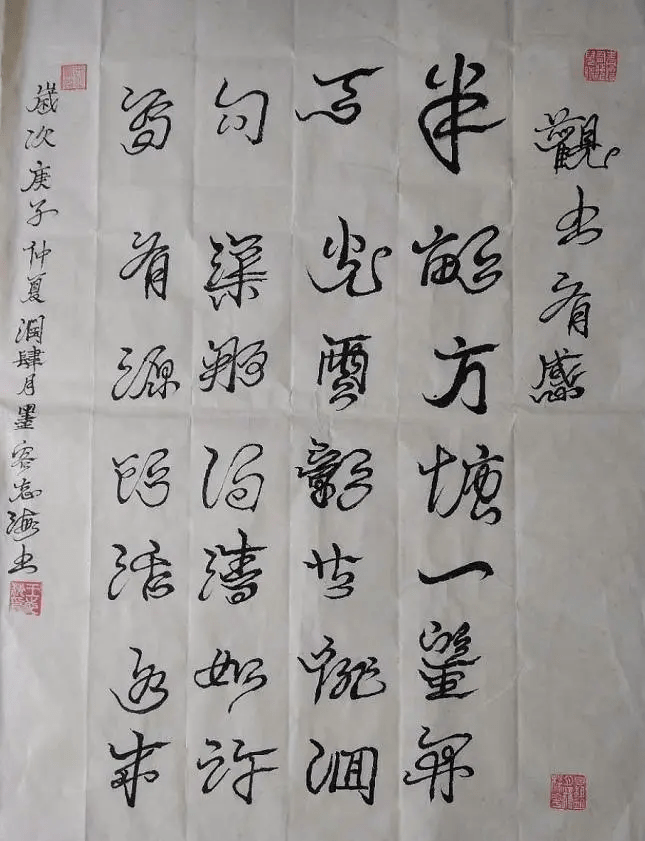 觀書有感
半畝方塘一鑒開
天光雲影共徘徊
問渠那得清如許
為有源頭活水來
歲次庚子仲夏潤肆月墨容志海書